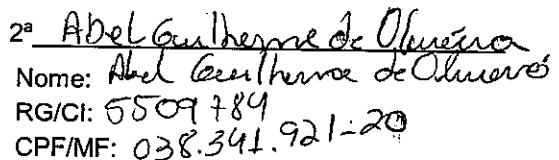 2ª Abel Guilherme de Oliveira
Nome: Abel Guilherme de Oliveira
RG/CI: 5509784
CPF/MF: 038.341.921-20